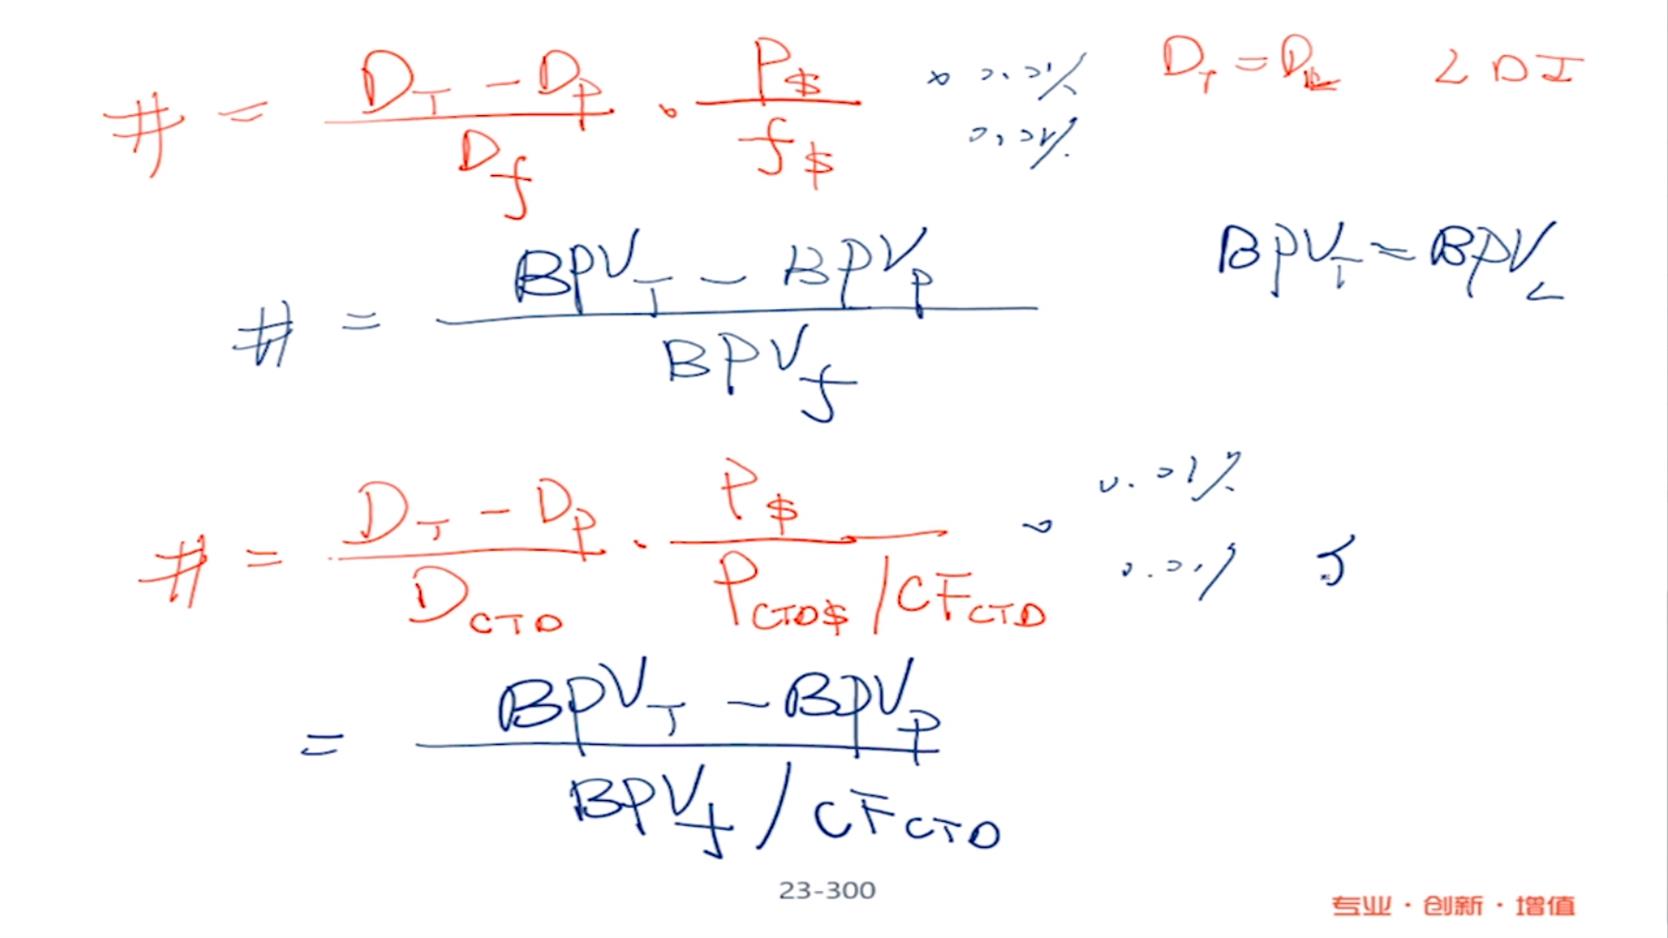 # = (D_T - D_P) / D_f · P_$ / f_$ × 0.01% / 0.01% D_T = D_L LDI
# = (BPV_T - BPV_P) / BPV_f BPV_T = BPV_L
# = (D_T - D_P) / D_CTD · P_$ / (P_CTD$ / CF_CTD) 0.01% / 0.01%
= (BPV_T - BPV_P) / (BPV_f / CF_CTD)
23-300
专业·创新·增值